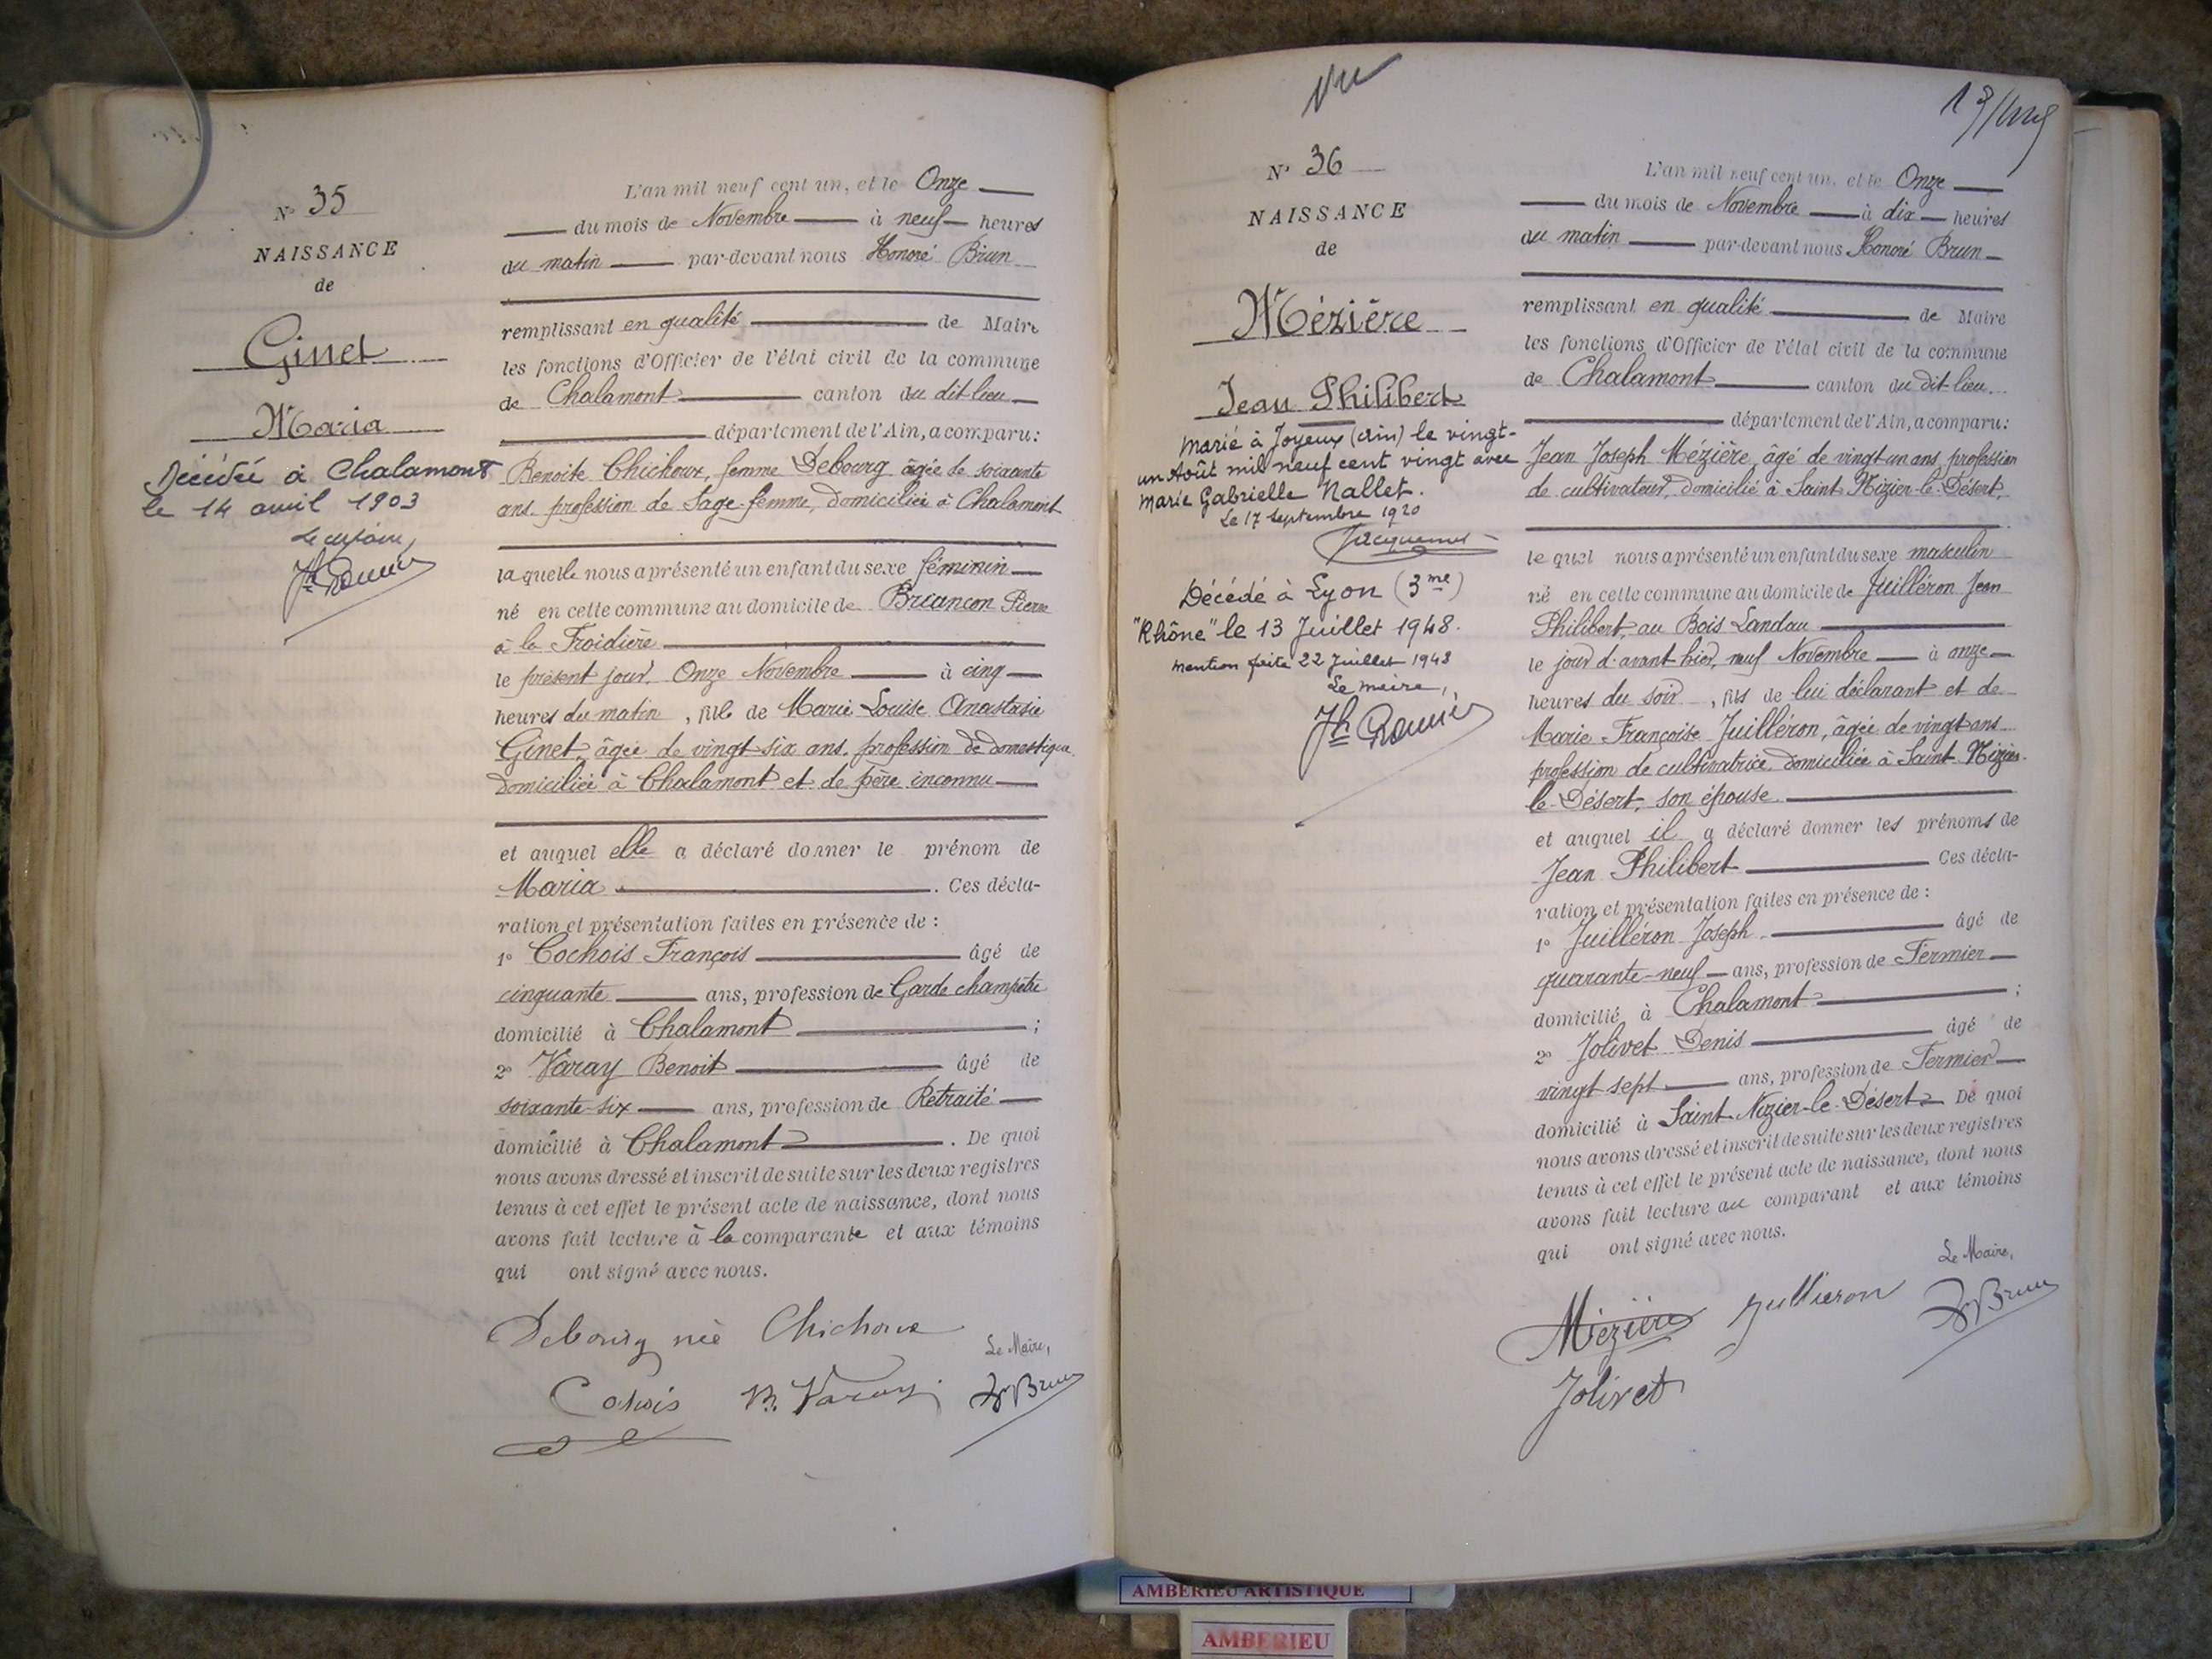 N° 35
NAISSANCE
de
Ginet
Maria
Décédée à Chalamont
le 14 avril 1903
L'an mil neuf cent un, et le Onze
du mois de Novembre à neuf heures
du matin par-devant nous Honoré Brun
remplissant en qualité de Maire
les fonctions d'Officier de l'état civil de la commune
de Chalamont canton du dit-lieu
département de l'Ain, a comparu:
Benoite Chichoux, femme Debourg âgée de soixante
ans, profession de Sage-femme, domiciliée à Chalamont
laquelle nous a présenté un enfant du sexe féminin
né en cette commune au domicile de Briançon Pierre
à la Froidière
le présent jour, Onze Novembre à cinq
heures du matin, fils de Marie Louise Anastasie
Ginet, âgée de vingt six ans, profession de domestique
domiciliée à Chalamont et de père inconnu
et auquel elle a déclaré donner le prénom de
Maria. Ces décla-
ration et présentation faites en présence de :
1° Cochois François âgé de
cinquante ans, profession de Garde champêtre
domicilié à Chalamont ;
2° Varay Benoit âgé de
soixante-six ans, profession de Retraité
domicilié à Chalamont. De quoi
nous avons dressé et inscrit de suite sur les deux registres
tenus à cet effet le présent acte de naissance, dont nous
avons fait lecture à la comparante et aux témoins
qui ont signé avec nous.
Debourg née Chichoux
Le Maire,
Cohois B. Varay Hé Brun
Vu
N° 36
NAISSANCE
de
Mézière
Jean Philibert
Marié à Joyeux (Ain) le vingt-
un Août mil neuf cent vingt avec
Marie Gabrielle Nallet.
Le 17 Septembre 1920
Décédé à Lyon (3me)
"Rhône" le 13 Juillet 1948.
mention faite 22 Juillet 1948
Le maire,
L'an mil neuf cent un, et le Onze
du mois de Novembre à dix heures
du matin par-devant nous Honoré Brun
remplissant en qualité de Maire
les fonctions d'Officier de l'état civil de la commune
de Chalamont canton du dit-lieu
département de l'Ain, a comparu:
Jean Joseph Mézière, âgé de vingt un ans, profession
de cultivateur, domicilié à Saint Nizier-le-Désert,
lequel nous a présenté un enfant du sexe masculin
né en cette commune au domicile de Juilléron Jean
Philibert, au Bois Landau
le jour d'avant hier, neuf Novembre à onze
heures du soir, fils de lui déclarant et de
Marie Françoise Juilléron, âgée de vingt ans
profession de cultivatrice domiciliée à Saint Nizier-
le-Désert, son épouse
et auquel il a déclaré donner les prénoms de
Jean Philibert Ces décla-
ration et présentation faites en présence de :
1° Juilléron Joseph âgé de
quarante-neuf ans, profession de Fermier
domicilié à Chalamont ;
2° Jolivet Denis âgé de
vingt sept ans, profession de Fermier
domicilié à Saint-Nizier-le-Désert De quoi
nous avons dressé et inscrit de suite sur les deux registres
tenus à cet effet le présent acte de naissance, dont nous
avons fait lecture au comparant et aux témoins
qui ont signé avec nous.
Le Maire,
Mézière Juilleron Hé Brun
Jolivet
AMBERIEU ARTISTIQUE
AMBERIEU